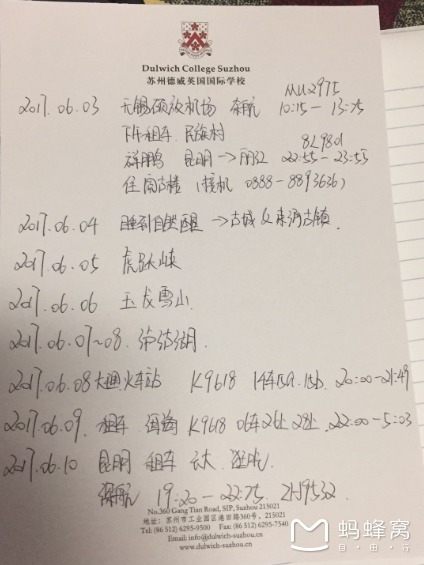 Dulwich College Suzhou
苏州德威英国国际学校
MU2975
2017.06.03 无锡硕放机场 东航 10:15-13:25
下午租车.民族村
8L9801
祥鹏 昆明→丽江 22:55-23:55
住 古楼 (接机 0888-8893636)
2017.06.04 睡到自然醒 →古城&束河古镇.
2017.06.05 虎跃峡
2017.06.06 玉龙雪山.
2017.06.07~08. 泸沽湖.
2017.06.08 火车站 K9618 14车 15a.15b. 20:00-21:49
2017.06.09. 租车 洱海 K9618 06车26上 28上. 22:00-5:03
2017.06.10 昆明 租车 云大.
航 19:20-22:25. ZH9532.
No.360 Gang Tian Road, SIP, Suzhou 215021
地址: 苏州市工业园区港田路360号, 215021
Tel: (86 512) 6295-9500 Fax: (86 512) 6295-7540
Email: info@dulwich-suzhou.cn
www.dulwich-suzhou.cn
蚂蜂窝
自由行